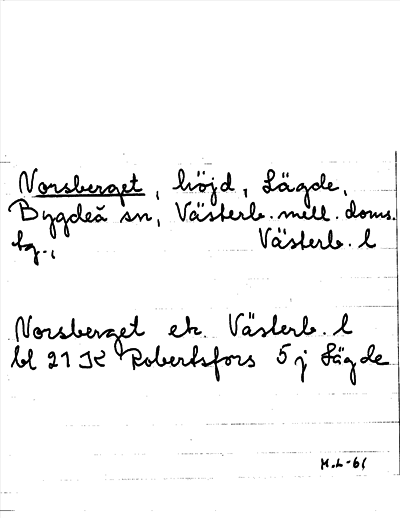 Norsberget, höjd, Lägde,
Bygdeå sn, Västerb. mell. doms.
tg., Västerb. l
Norsberget ek. Västerb. l
bl 21 K Robertsfors 5 j Lägde
M.L-61